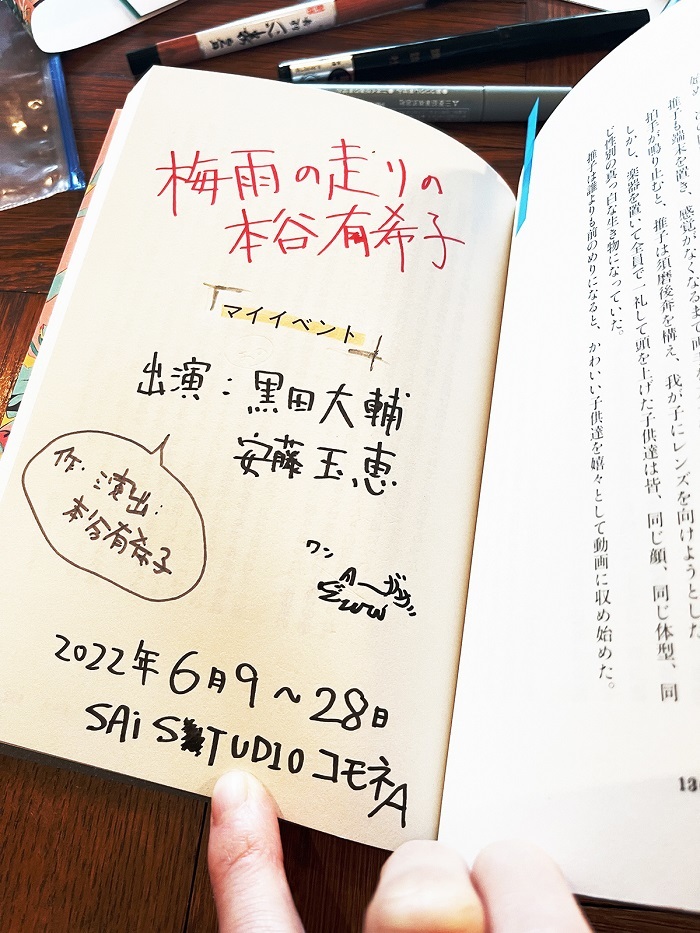 梅雨の走りの
本谷有希子
「マイイベント」
出演：黒田大輔
安藤玉恵
作・演出：
本谷有希子
ワン
2022年6月9〜28日
SAi STUDIO コモネA
推子も端末を置き、感覚がなくなるまで
拍手が鳴り止むと、推子は須磨後奔を構え、我が子にレンズを向けようとした
しかし、楽器を置いて全員で一礼して頭を上げた子供達は皆、同じ顔、同じ体型、同
じ性別の真っ白な生き物になっていた。
推子は誰よりも前のめりになると、かわいい子供達を嬉々として動画に収め始めた。
13